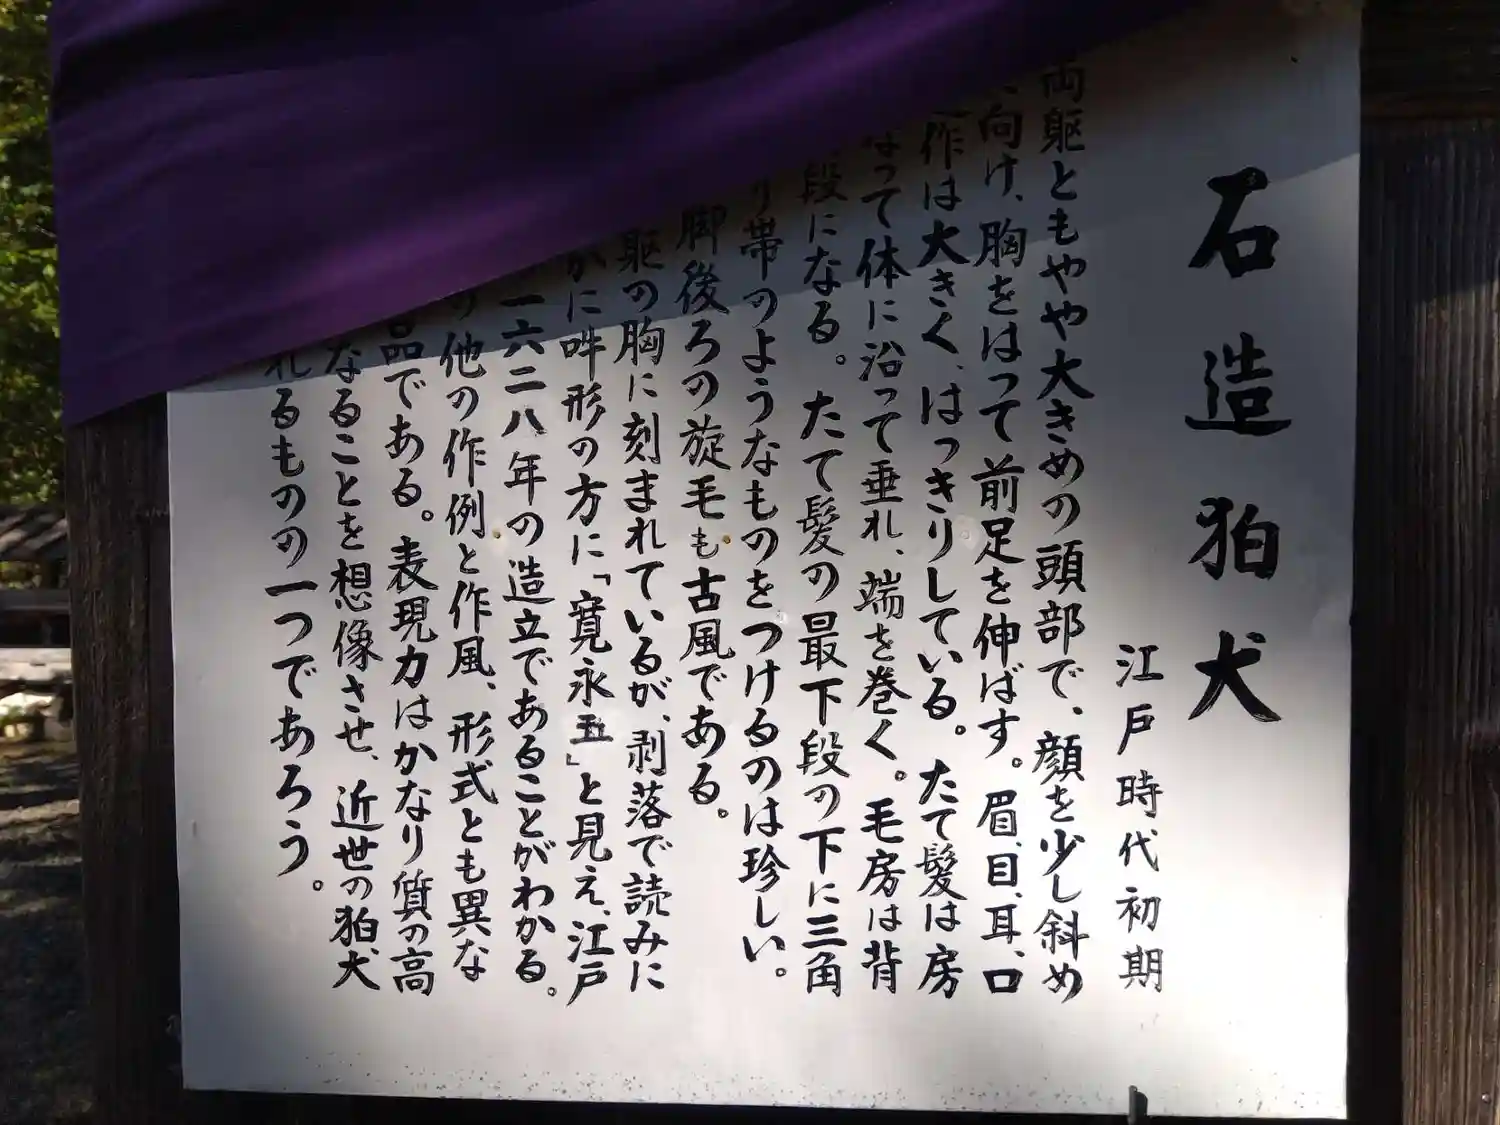 石造狛犬
江戸時代初期
両躯ともやや大きめの頭部で、顔を少し斜め
に向け、胸をはって前足を伸ばす。眉、目、耳、口
作は大きく、はっきりしている。たて髪は房
なって体に沿って垂れ、端を巻く。毛房は背
段になる。たて髪の最下段の下に三角
り帯のようなものをつけるのは珍しい。
脚後ろの旋毛も古風である。
躯の胸に刻まれているが、剥落で読みに
かに吽形の方に「寛永五」と見え、江戸
一六二八年の造立であることがわかる。
の他の作例と作風、形式とも異な
品である。表現力はかなり質の高
なることを想像させ、近世の狛犬
れるものの一つであろう。